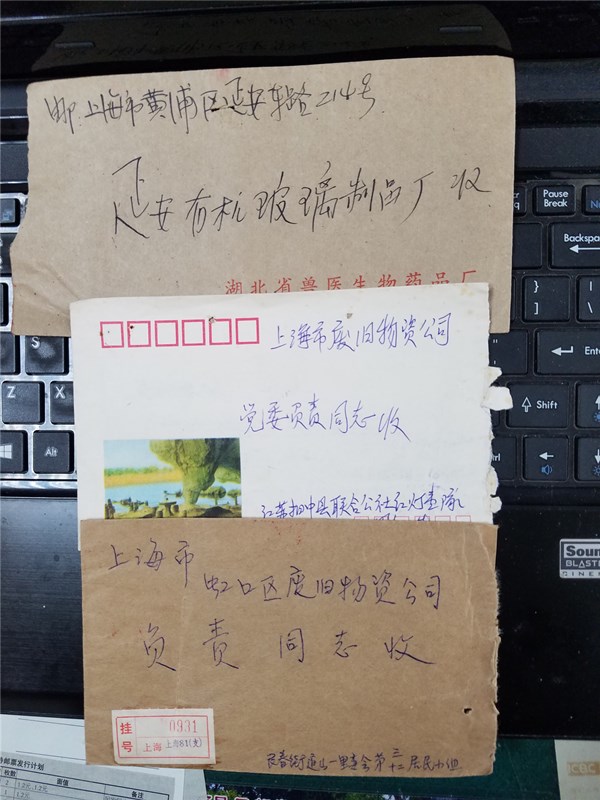 邮.上海市黄浦区延安东路214号
延安有机玻璃制品厂收
湖北省兽医生物药品厂
上海市废旧物资公司
党委负责同志收
联合公社红灯
上海市
虹口区废旧物资公司
负责同志收
挂号
0931
上海
上海81(支)
居民小组
票发行计划
枚数
面值
备注
1.2元,1.2元
1.2元
Pause
Break
Backspace
Enter
Shift
Z
X
Alt
Ctrl
Sound
BLASTER
CINEMA